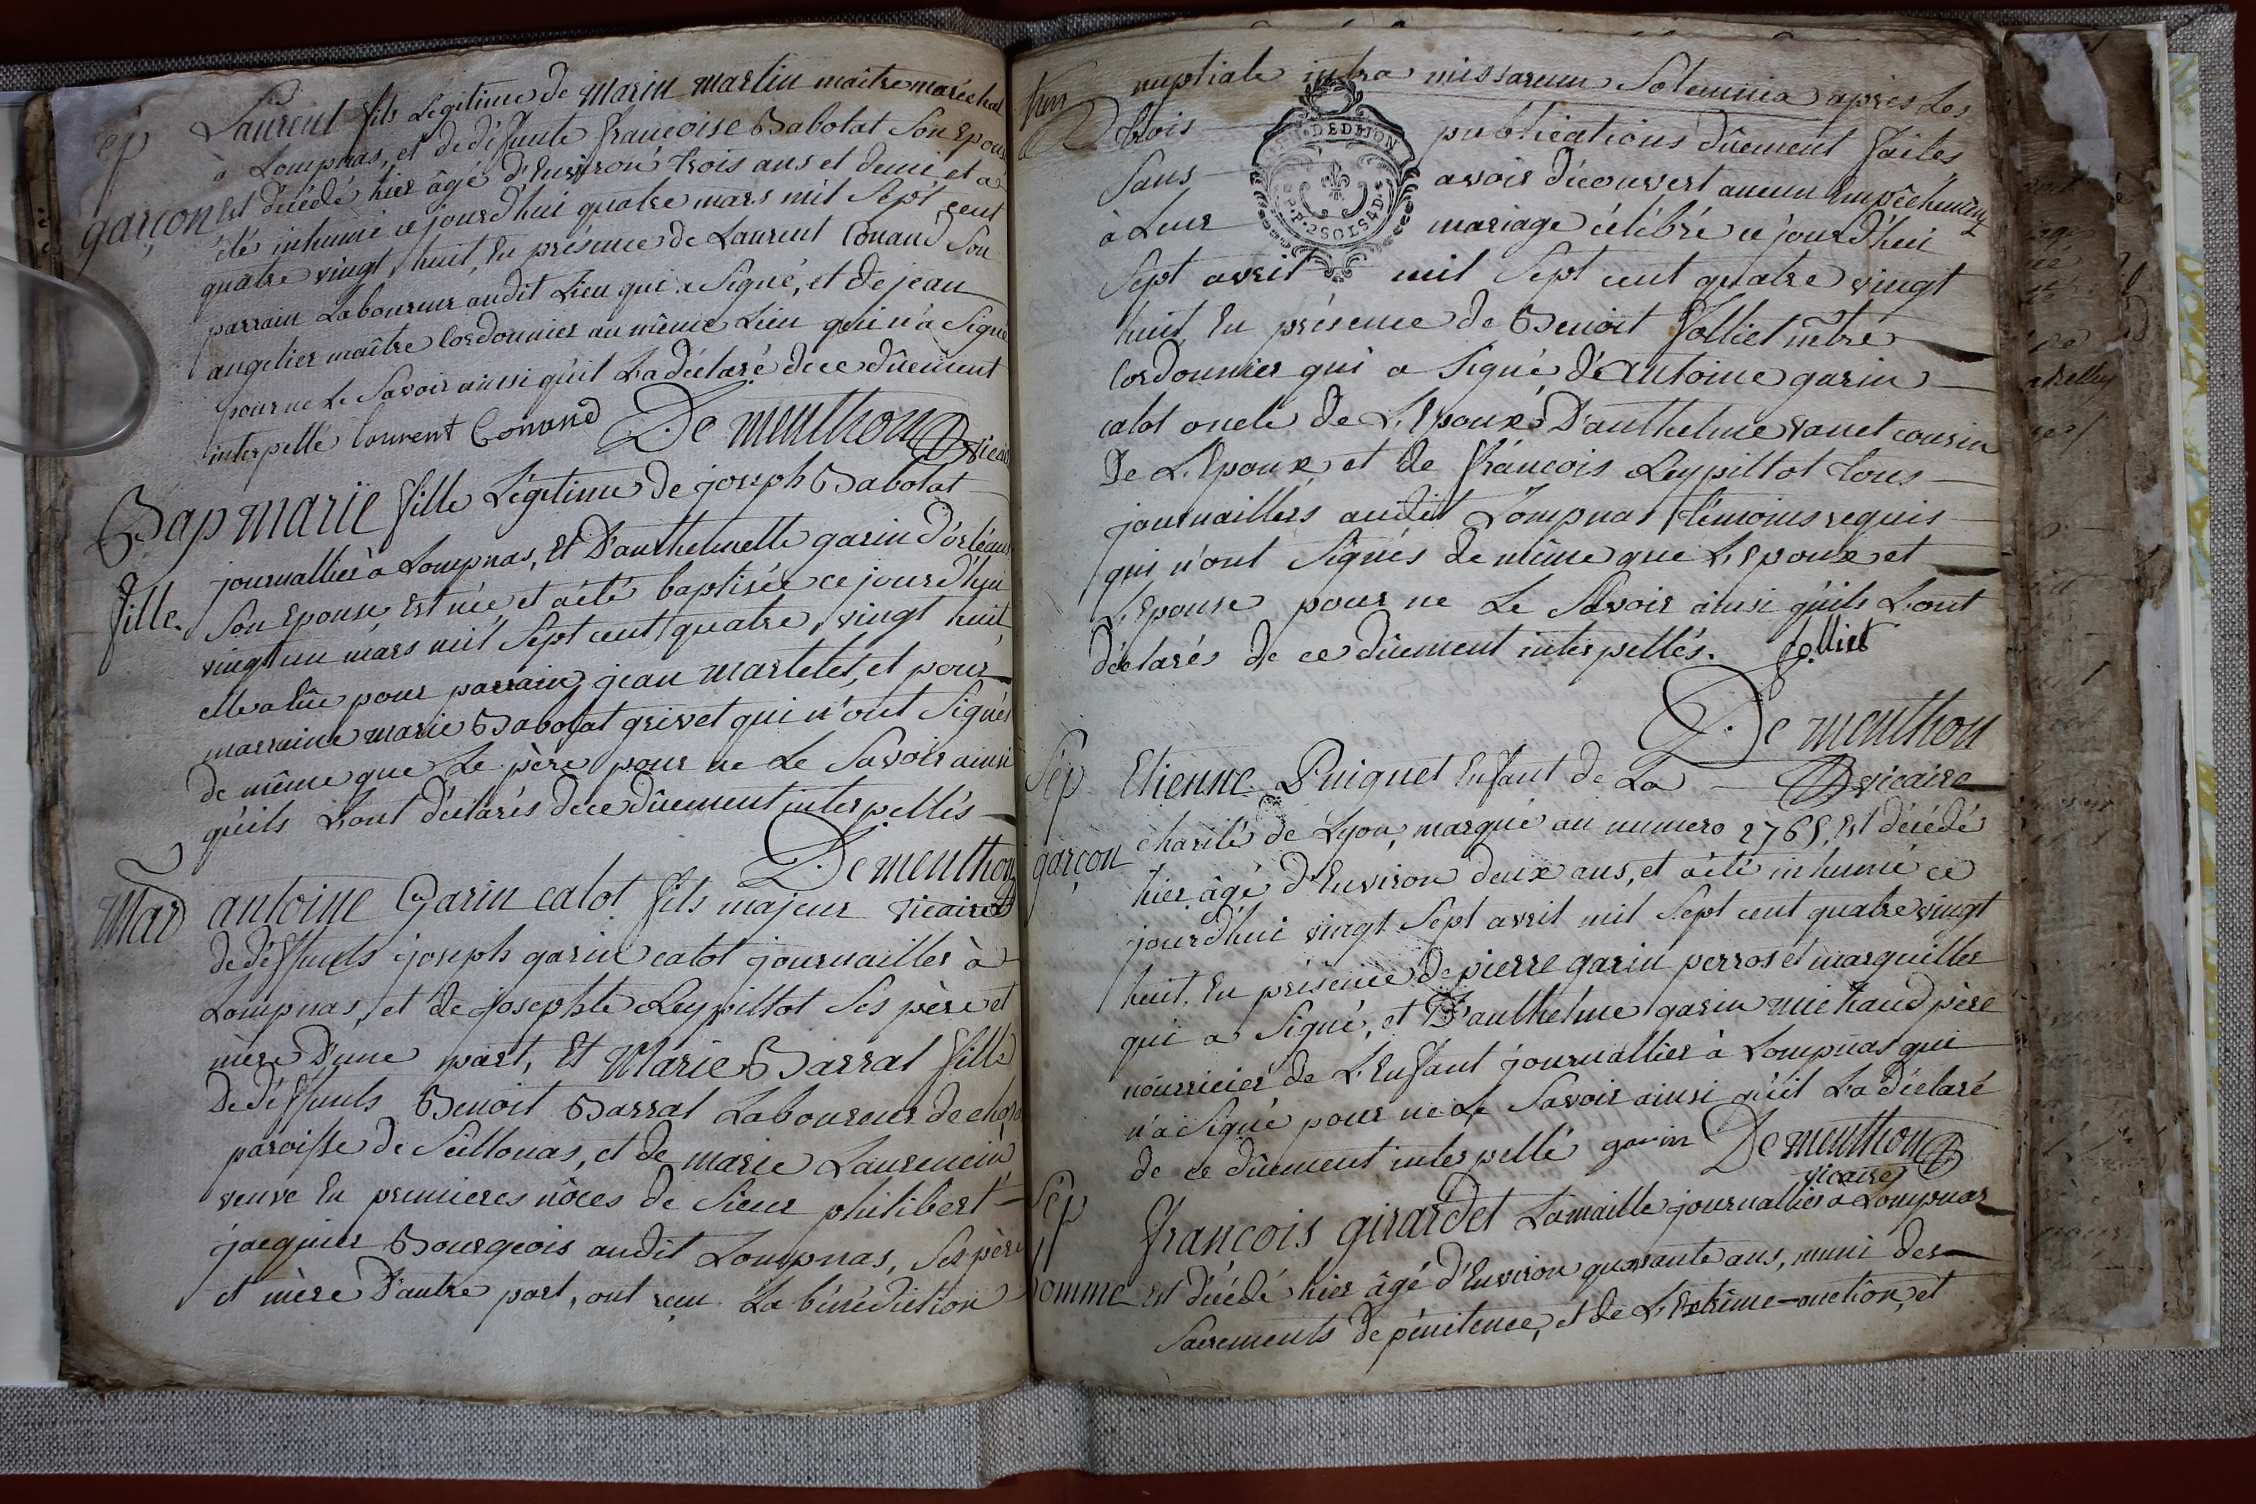 Sep Laurent fils Légitime de Marin Martin maître maréchal
à Lompnas, et de déffunte françoise Babolat Son Epouse
garçon Est décédé hier âgé d'Environ trois ans et demi et a
été inhumé ce jourd'hui quatre mars mil Sept cent
quatre vingt huit, En présence de Laurent Conand Son
parrain Laboureur audit Lieu qui a Signé, et de jean
angelier maître Cordonnier au même Lieu qui n'a Signé
pour ne Le Savoir ainsi qu'il L'a déclaré de ce dûement
interpellé laurent Conand De Menthon vicaire
Bap marie fille Légitime de joseph Babolat
journallier à Lompnas, Et D'anthelmette garin d'orléans
fille. Son Epouse, Est née et a été baptisée ce jourd'hui
vingt un mars mil Sept cent quatre vingt huit,
elle a Eû pour parrain jean martelet, et pour
marraine marie Babolat grivet qui n'ont Signés
de même que Le père pour ne Le Savoir ainsi
qu'ils L'ont déclarés de ce dûement interpellés
De menthon
Mar antoine Garin calot fils majeur vicaire
de déffunts joseph garin calot journaillier à
Lompnas, et de josephte Leypillot Ses père et
mère D'une part, Et Marie Barral fille
De déffunts Benoit Barral Laboureur de
paroisse de Seillonas, et de marie Laurencin
veuve En premieres nôces de Sieur philibert
jacquier Bourgeois audit Lompnas, Ses père
et mère D'autre part, ont reçu La bénédiction
nuptiale intra missarum Solemnia après Les
trois publications dûement faites
Sans avoir découvert aucun Empêchement
à Leur mariage célébré ce jourd'hui
GEN. DE DIJON
P.P. 2 SOLS 4 D.
Sept avril mil Sept cent quatre vingt
huit, En présence de Benoit Jolliet mtre
Cordonnier qui a Signé d'Antoine garin
calot oncle de L'Epoux D'anthelme vanet cousin
De L'Epoux, et de françois Leypillot tous
journailliers audit Lompnas témoins requis
qui n'ont Signés de même que L'Epoux et
L'Epouse pour ne Le Savoir ainsi qu'ils L'ont
déclarés de ce dûement interpellés. Jolliet
De menthon
Sep Etienne Puiquet Enfant de La vicaire
charité de Lyon, marqué au numero 2765, Est décédé
garçon hier âgé d'Environ deux ans, et a été inhumé ce
jourd'hui vingt Sept avril mil Sept cent quatre vingt
huit. En présence de pierre garin perroset marguiller
qui a Signé, et D'anthelme garin michaud père
nourricier de L'Enfant journallier à Lompnas qui
n'a Signé pour ne Le Savoir ainsi qu'il L'a déclaré
de ce dûement interpellé garin De Menthon
vicaire
Sep françois girardet Lamaille journallier à Lompnas
homme Est décédé hier âgé d'Environ quarante ans, muni des
Sacrements de pénitence, et de L'Extrême-onction, et